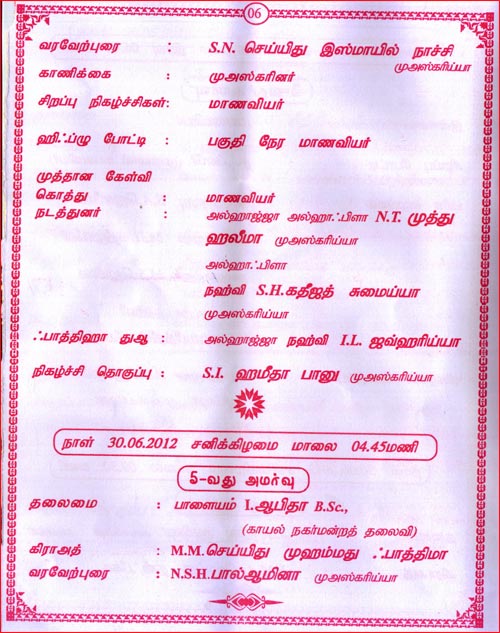 06
வரவேற்புரை : S.N. செய்யிது இஸ்மாயில் நாச்சி
முஅஸ்கரிய்யா
காணிக்கை : முஅஸ்கரினர்
சிறப்பு நிகழ்ச்சிகள்: மாணவியர்
ஹிஃப்ழு போட்டி : பகுதி நேர மாணவியர்
முத்தான கேள்வி
கொத்து : மாணவியர்
நடத்துனர் : அல்ஹாஜ்ஜா அல்ஹாஃபிளா N.T. முத்து
ஹலீமா முஅஸ்கரிய்யா
அல்ஹாஃபிளா
நஹ்வி S.H.கதீஜத் சுமைய்யா
முஅஸ்கரிய்யா
ஃபாத்திஹா துஆ : அல்ஹாஜ்ஜா நஹ்வி I.L. ஜவ்ஹரிய்யா
நிகழ்ச்சி தொகுப்பு : S.I. ஹமீதா பானு முஅஸ்கரிய்யா
நாள் 30.06.2012 சனிக்கிழமை மாலை 04.45மணி
5-வது அமர்வு
தலைமை : பாளையம் I.ஆபிதா B.Sc.,
(காயல் நகர்மன்றத் தலைவி)
கிராஅத் : M.M.செய்யிது முஹம்மது ஃபாத்திமா
வரவேற்புரை : N.S.H.பால்ஆமினா முஅஸ்கரிய்யா